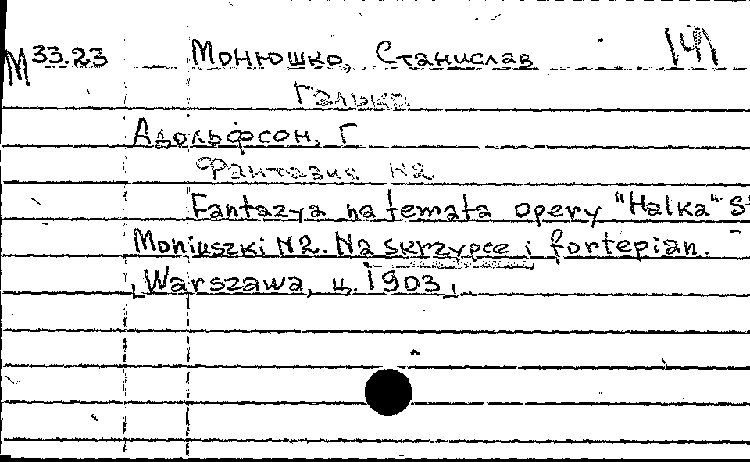 М 33.23 Монюшко, Станислав 141
Галька
Адольфсон, Г
Фантазия N2
Fantazya na temata opery "Halka" S
Moniuszki N2. Na skrzypce i fortepian.
[Warszawa, ц. 1903].